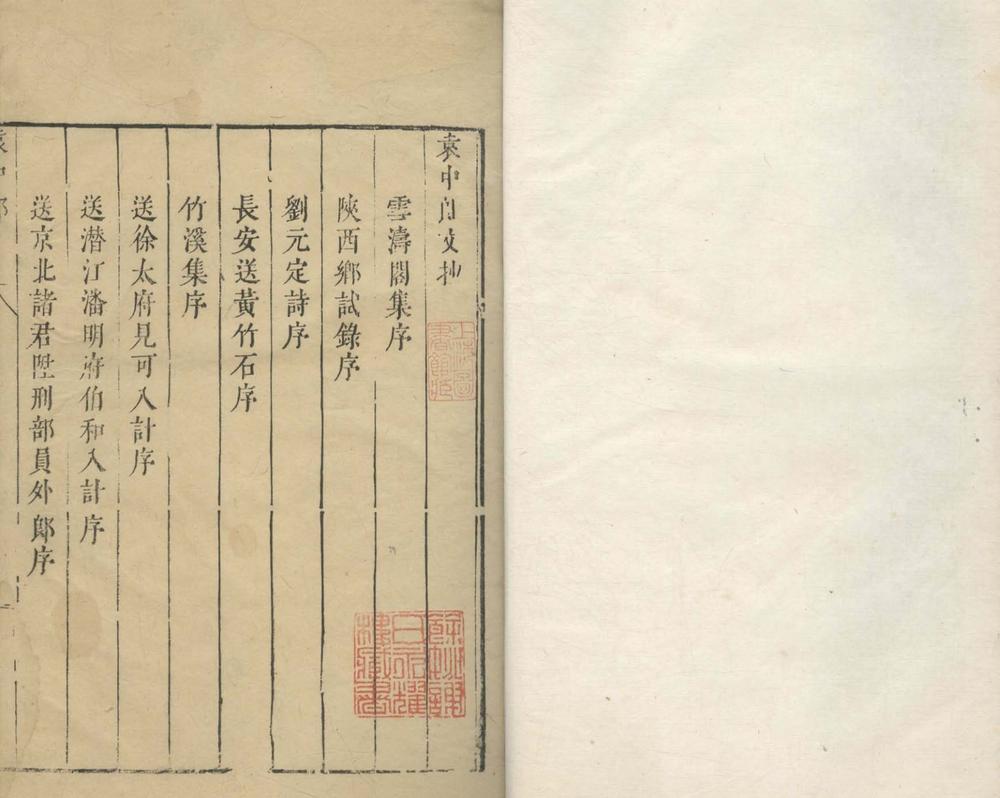 袁中郎文抄
雲濤閣集序
陝西鄉試錄序
劉元定詩序
長安送黃竹石序
竹溪集序
送徐太府見可入計序
送潛江潘明府伯和入計序
送京北諸君陞刑部員外郎序
袁中郎
上海圖書館藏